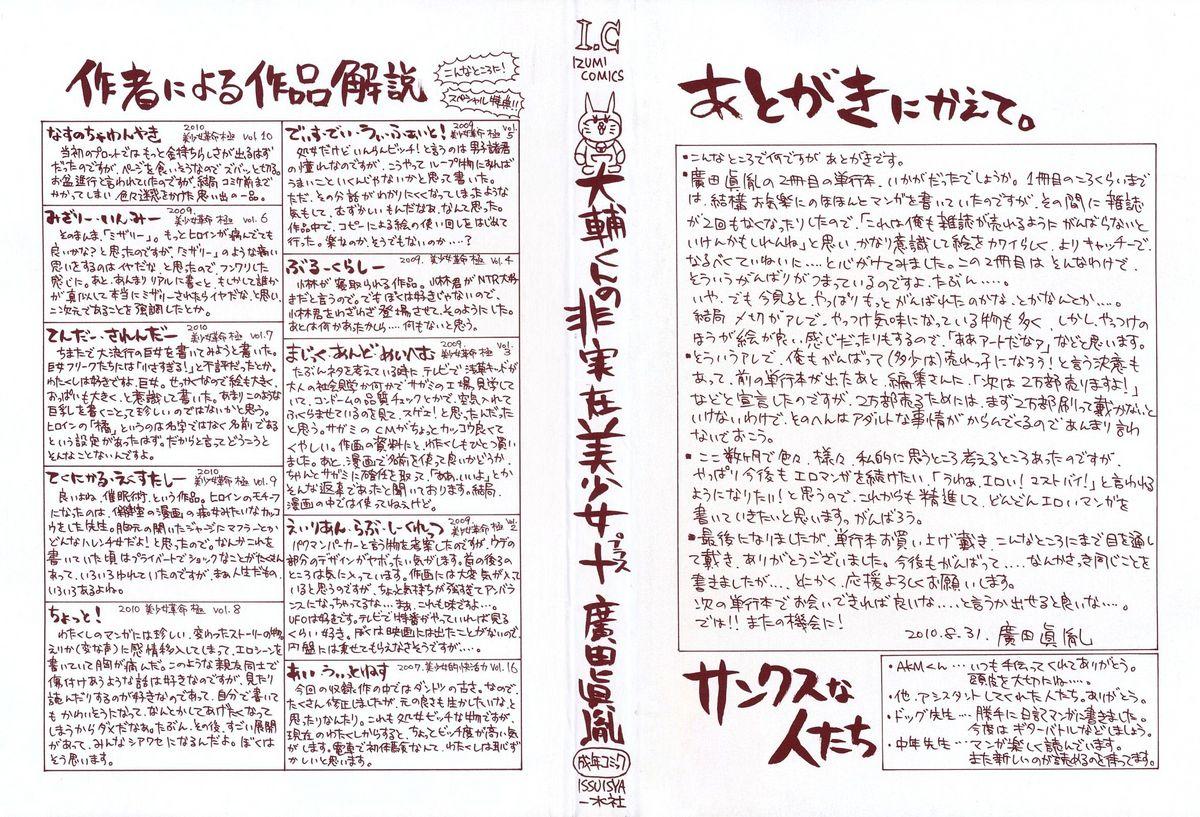 作者による作品解説
こんなところに!
スペシャル特集!!
なすのちゃわんやき 2010 美少女革命 極 Vol 10
当初のプロットではもっと金持ちらしさが出るはず
だったのですが、ページを食いそうなのでズバッと切る。
お盆進行と言われていたのですが、結局コミケ前まで
かかってしまい 色々迷惑をかけた思い出の一品。
みざりー・いんみー 2009 美少女革命 極 Vol. 6
そのまんま、「ミザリー」。もっとヒロインが病んでても
良いかな?と思ったのですが、「ミザリー」のような痛い
思いをするのはイヤだな と思ったので フンワリした
感じに。あと、あんまりリアルに書くと もしかして誰か
が真似して本当にミザリーされたらイヤだな、と思い、
二次元であることを強調したとか。
てんだー・されんだー 2010 美少女革命 極 Vol.7
ちまたで大流行の巨女を書いてみようと書いた。
巨女フリークたちには「小さすぎる!」と不評だったとか。
わたくしは好きですよ、巨女。せっかくなので絵も大きく、
おっぱいも大きく、と意識して書いた。あまりこのような
巨乳を書くことって珍しいのではないかと思う。
ヒロインの「橘」というのは名字ではなく名前である
という設定があったはず。だからと言ってどうこうと
そんなことないんですよ。
てくにかる・えくすたしー 2010 美少女革命 極 Vol. 9
良いよね、催眠術。という作品。ヒロインのモチーフ
になったのは、保健室の漫画の痴女みたいなカッコ
うをした先生。胸元の開いたジャージにマフラーとか
どんなハレンチ女だよ!と思ったので。なんかこれを
書いていた頃はプライバートでショックなことがたくさん
あって、いろいろゆれていたのですが、まぁ人生だもの、
いろいろあるよね。
ちょっと! 2010 美少女革命 極 Vol. 8
わたくしのマンガには珍しい、変わったストーリーの物。
えりか(変な声)に感情移入してしまって、エロシーンを
書いていて胸が痛んだ。このような親友同士で
傷付けあうような話は好きなのですが、見たり
読んだりするのが好きなのであって、自分で書いて
もかわいそうになって、なんとかしてあげたくなって
しまうからダメだなぁ。たぶん、その後、すごい展開
があって、みんなシアワセになるんだよ。ぼくは
そう思います。
でぃすでい・うぃ・ふぁいと! 2009 美少女革命 極 Vol. 5
処女だけどいんらんビッチ!と言うのは男子諸君
の憧れなのですが、こうやってループ物にすれば
うまいこといくんじゃないかと思って書いた。
ただ、その分話がわかりにくくなってしまったような
気もして、むずかしいもんだなぁ、なんて思った。
作品中で、コピーによる絵の使い回しをはじめて
行った。楽なのか、そうでもないのか....?
ぶるーくらしー 2009 美少女革命 極 Vol. 4
小林が寝取られる作品。小林君がNTR大好
きだと言うので。でもぼくは好きじゃないので、
小林君をわざわざ登場させて、そのようにした。
あとは何かあったかしら....何もないと思う。
まじっく・あんど・めいへむ 2009 美少女革命 極 Vol. 3
たぶんネタを考えている時に、テレビで浅草キッドが
大人の社会見学か何かでサガミの工場見学して
いて、コンドームの品質チェックとかで、空気入れて
ふくらませているのを見て、スゲェ!と思ったんだった
と思う。サガミのCMがちょっとカッコウ良くて
くやしい。作画の資料にと、わたくしもひとつ買い
ました。あと、漫画で名前を使って良いかどうか、
ちゃんとサガミに確任を取って、「ああ、いいよ」とか
そんな返事であったと聞いております。結局、
漫画の中では使ってねぇけど。
えいりあん・らぶ・しーくれっつ 2009 美少女革命 極 Vol. 2
パクマンパーカーと言う物を考案したのですが、ウデの
部分のデザインがヤボったい気がします。首の後ろの
ところは気に入っています。作画には大変気が入って
いると思うのですが、ちょっと気持ちが強すぎてアンバラ
ンスになっちゃってるな....まぁ、これも味ですよ...。
UFOは好きです。テレビで特番がやっていれば見る
くらい好き。ぼくは映画には出たことがないので、
円盤には乗せてもらえなさそうですが....。
あい うぃっとねす 2007. 美少女的快活力 Vol. 16
今回の収録作の中ではダントツの古さ。なので、
たくさん修正しましたが、元の良さも生かしたいな、と
思ったりなんたり。これも処女ビッチな物ですが、
現在のわたくしからすると、ちょっとビッチ度が高い気
がします。電車で初体験なんて、わたくしは恥ずか
かしいと思います。
I.C
IZUMI
COMICS
大輔くんの非実在美少女十 プラス 廣田眞胤
成年コミック
ISSUISYA
一水社
あとがきにかえて。
・こんなところで何ですが あとがきです。
・廣田眞胤の2冊目の単行本、いかがだったでしょうか。1冊目のころくらいまで
は、結構お気楽にのほほんとマンガを書いていたのですが、その間に雑誌
が2回もなくなったりしたので、「これは俺も雑誌が売れるようにがんばらないと
いけんかもしれんね」と思い、かなり意識して絵をカワイらしく、よりキャッチーで、
なるべくていねいに....と心がけてみました。この2冊目は そんなわけで、
そういうがんばりがつまっているのですよ、たぶん....。
いや、でも今見ると、やっぱりもっとがんばれたのかな、とかなんとか....。
結局 〆切がアレで、やっつけ気味になっている物も多く、しかし、やっつけの
ほうが絵が良い感じだったりもするので、「ああアートだなァ」などと思います。
・とういうアレで、俺もがんばって(多少は)売れっ子になろう!と言う決意も
あって、前の単行本が出たあと、編集さんに、「次は2万部売りますよ!」
などと宣言したのですが、2万部売るためには、まず2万部刷って載かないと
いけないわけで、そのへんはアダルトな事情がからんでくるのであんまり言わ
ないでおこう。
・ここ数ヶ月で色々、様々、私的に思うところ考えるところあったのですが、
やっぱり今後もエロマンガを続けたい、「うわぁ、エロい!マストバイ!」と言われる
ようになりたい!と思うので、これからも精進して、どんどんエロいマンガを
書いていきたいと思います。がんばろう。
・最後になりましたが、単行本お買い上げ載き、こんなところにまで目を通し
て載き、ありがとうございました。今後もがんばって.....なんかさっき同じことを
書きましたが....とにかく、応援よろしくお願いします。
次の単行本でお会いできれば良いな....と言うか出せると良いな....。
では!!またの機会に!
2010.8.31. 廣田眞胤
サンクスな
人たち
・AKMくん...いつも手伝ってくれてありがとう。
頭皮を大切にね....。
・他、アシスタントしてくれた人たち、ありがとう。
・ドッグ先生...勝手に日記マンガに書きました。
今度はギターバトルなどしましょう。
・中年先生...マンガ楽しく読んでいます。
また新しいのが読めるのを待ってます。